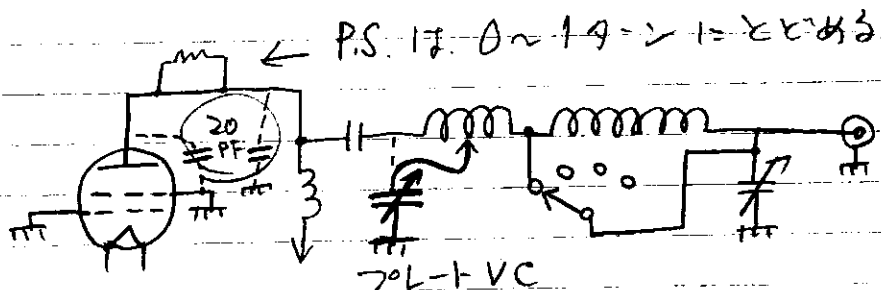 P.S. は. 0~1ターンにとどめる
20
PF
プレートVC